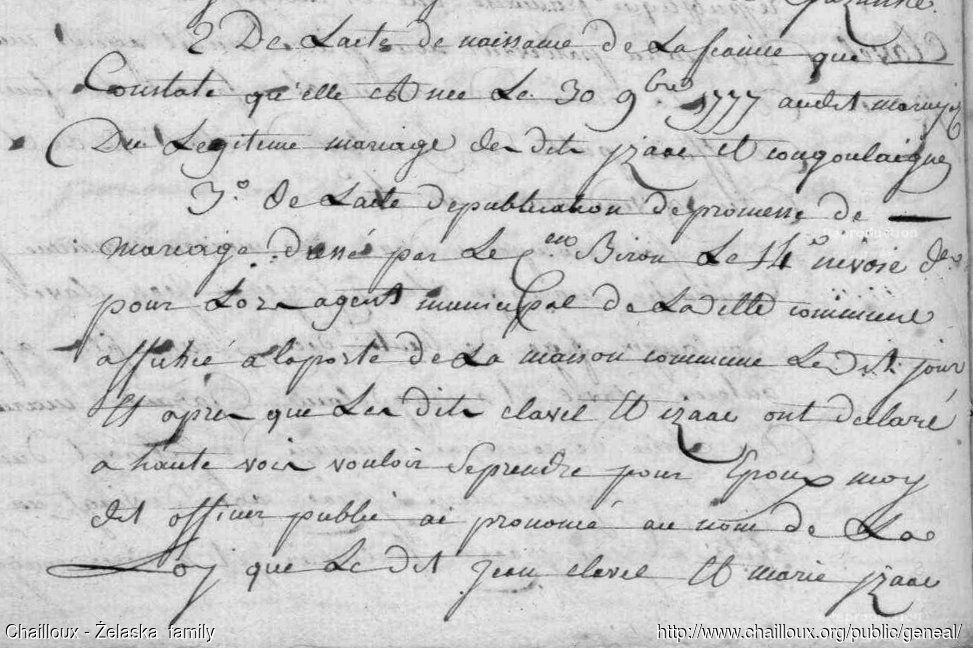 2 De Lacte de naissance de La feame que
Constate qu'elle est nee Le 30 9bre 1777 audit
Du Legitime mariage des dits izaac et
3.° De Lacte depublication depromesse de
mariage dressé par Le Cen Biron Le 14 nivose der
pour Lors agent municipal de Laditte commune
affiché a laporte de La maison commune Ledit jour
Et apres que Les dits clavel Et izaac ont declaré
a haute voix vouloir Seprendre pour Epoux moy
dit officier public ai prononcé au nom de La
Loy que Le dit jean clavel Et marie izaac
Chailloux - Żelaska family
http://www.chailloux.org/public/geneal/